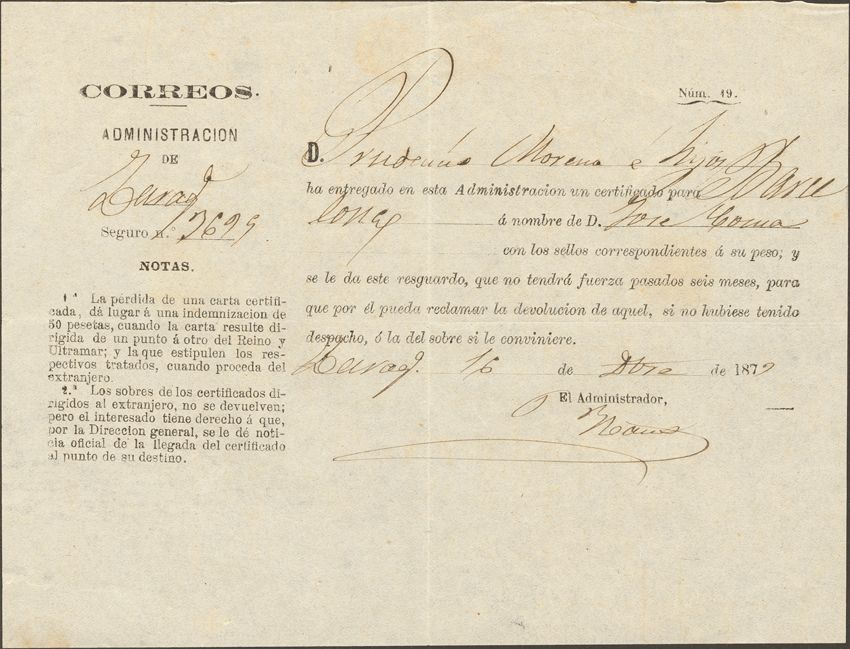 CORREOS.
ADMINISTRACION
DE
Zarag.ª
Seguro n.º
NOTAS.
1.ª La pérdida de una carta certifi-
cada, dá lugar á una indemnizacion de
50 pesetas, cuando la carta resulte di-
rigida de un punto á otro del Reino y
Ultramar; y la que estipulen los res-
pectivos tratados, cuando proceda del
extranjero.
2.ª Los sobres de los certificados di-
rigidos al extranjero, no se devuelven;
pero el interesado tiene derecho á que,
por la Direccion general, se le dé noti-
cia oficial de la llegada del certificado
al punto de su destino.
Núm. 19.
D. Prudencio Moreno e hijos
ha entregado en esta Administracion un certificado para Barce
lona á nombre de D. Jose
con los sellos correspondientes á su peso; y
se le da este resguardo, que no tendrá fuerza pasados seis meses, para
que por él pueda reclamar la devolucion de aquel, si no hubiese tenido
despacho, ó la del sobre si le conviniere.
Zarag. 16 de Dbre de 1879
El Administrador,